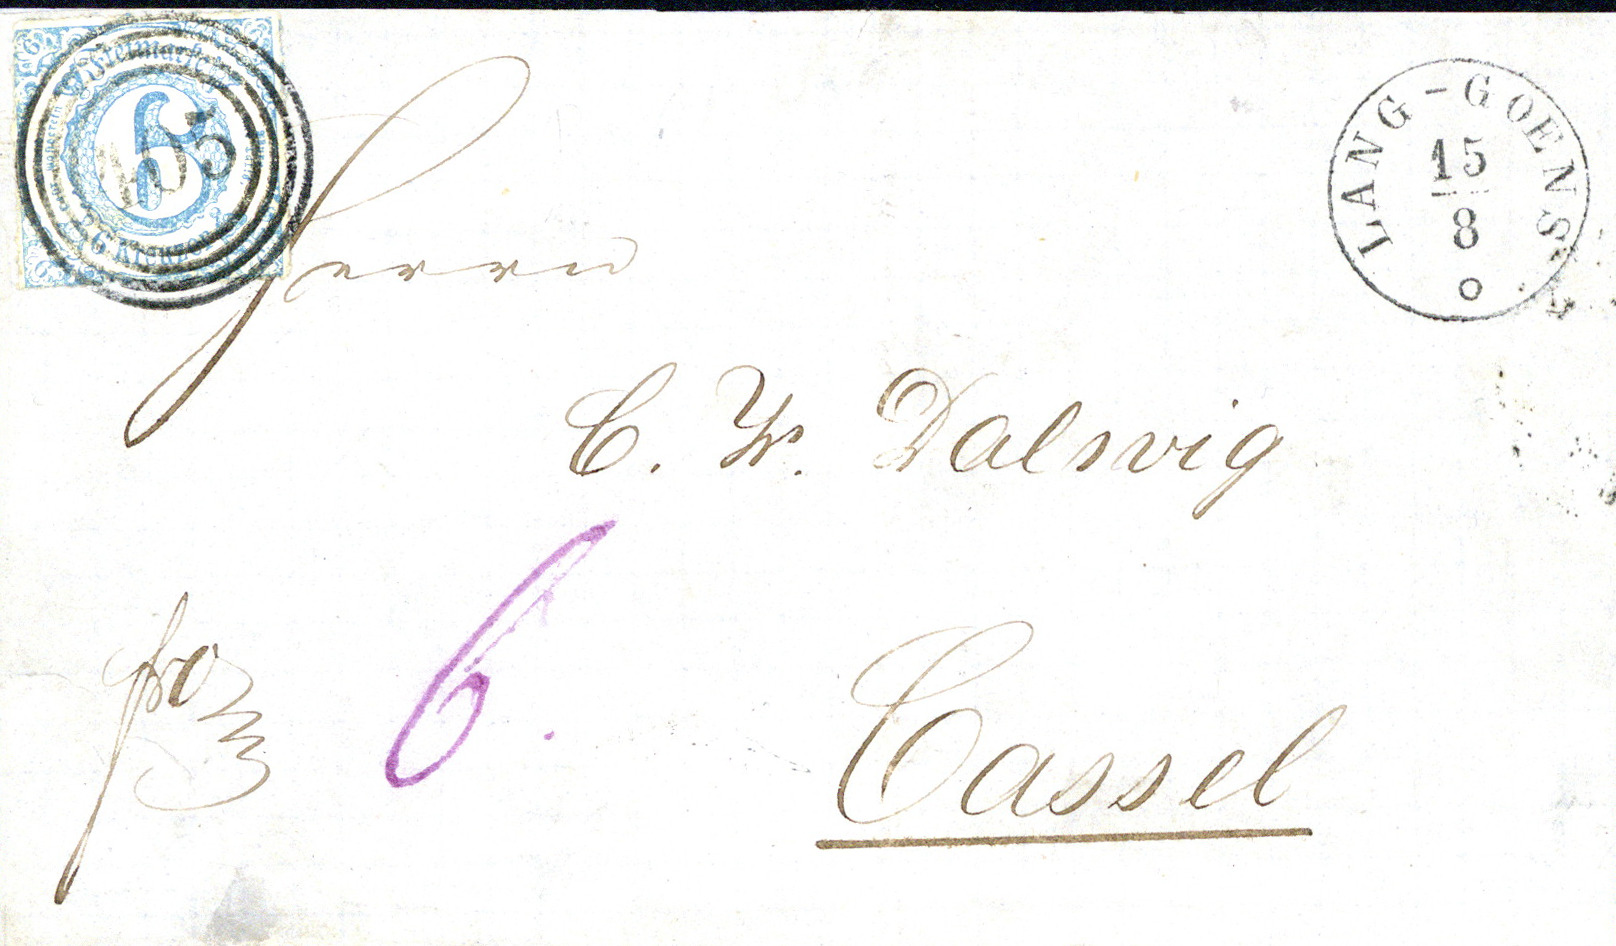 Freimarke
6
405
6 Kreuzer
LANG-GOENS
15
8
Herrn
C. W. Dalwig
fro
6.
Cassel